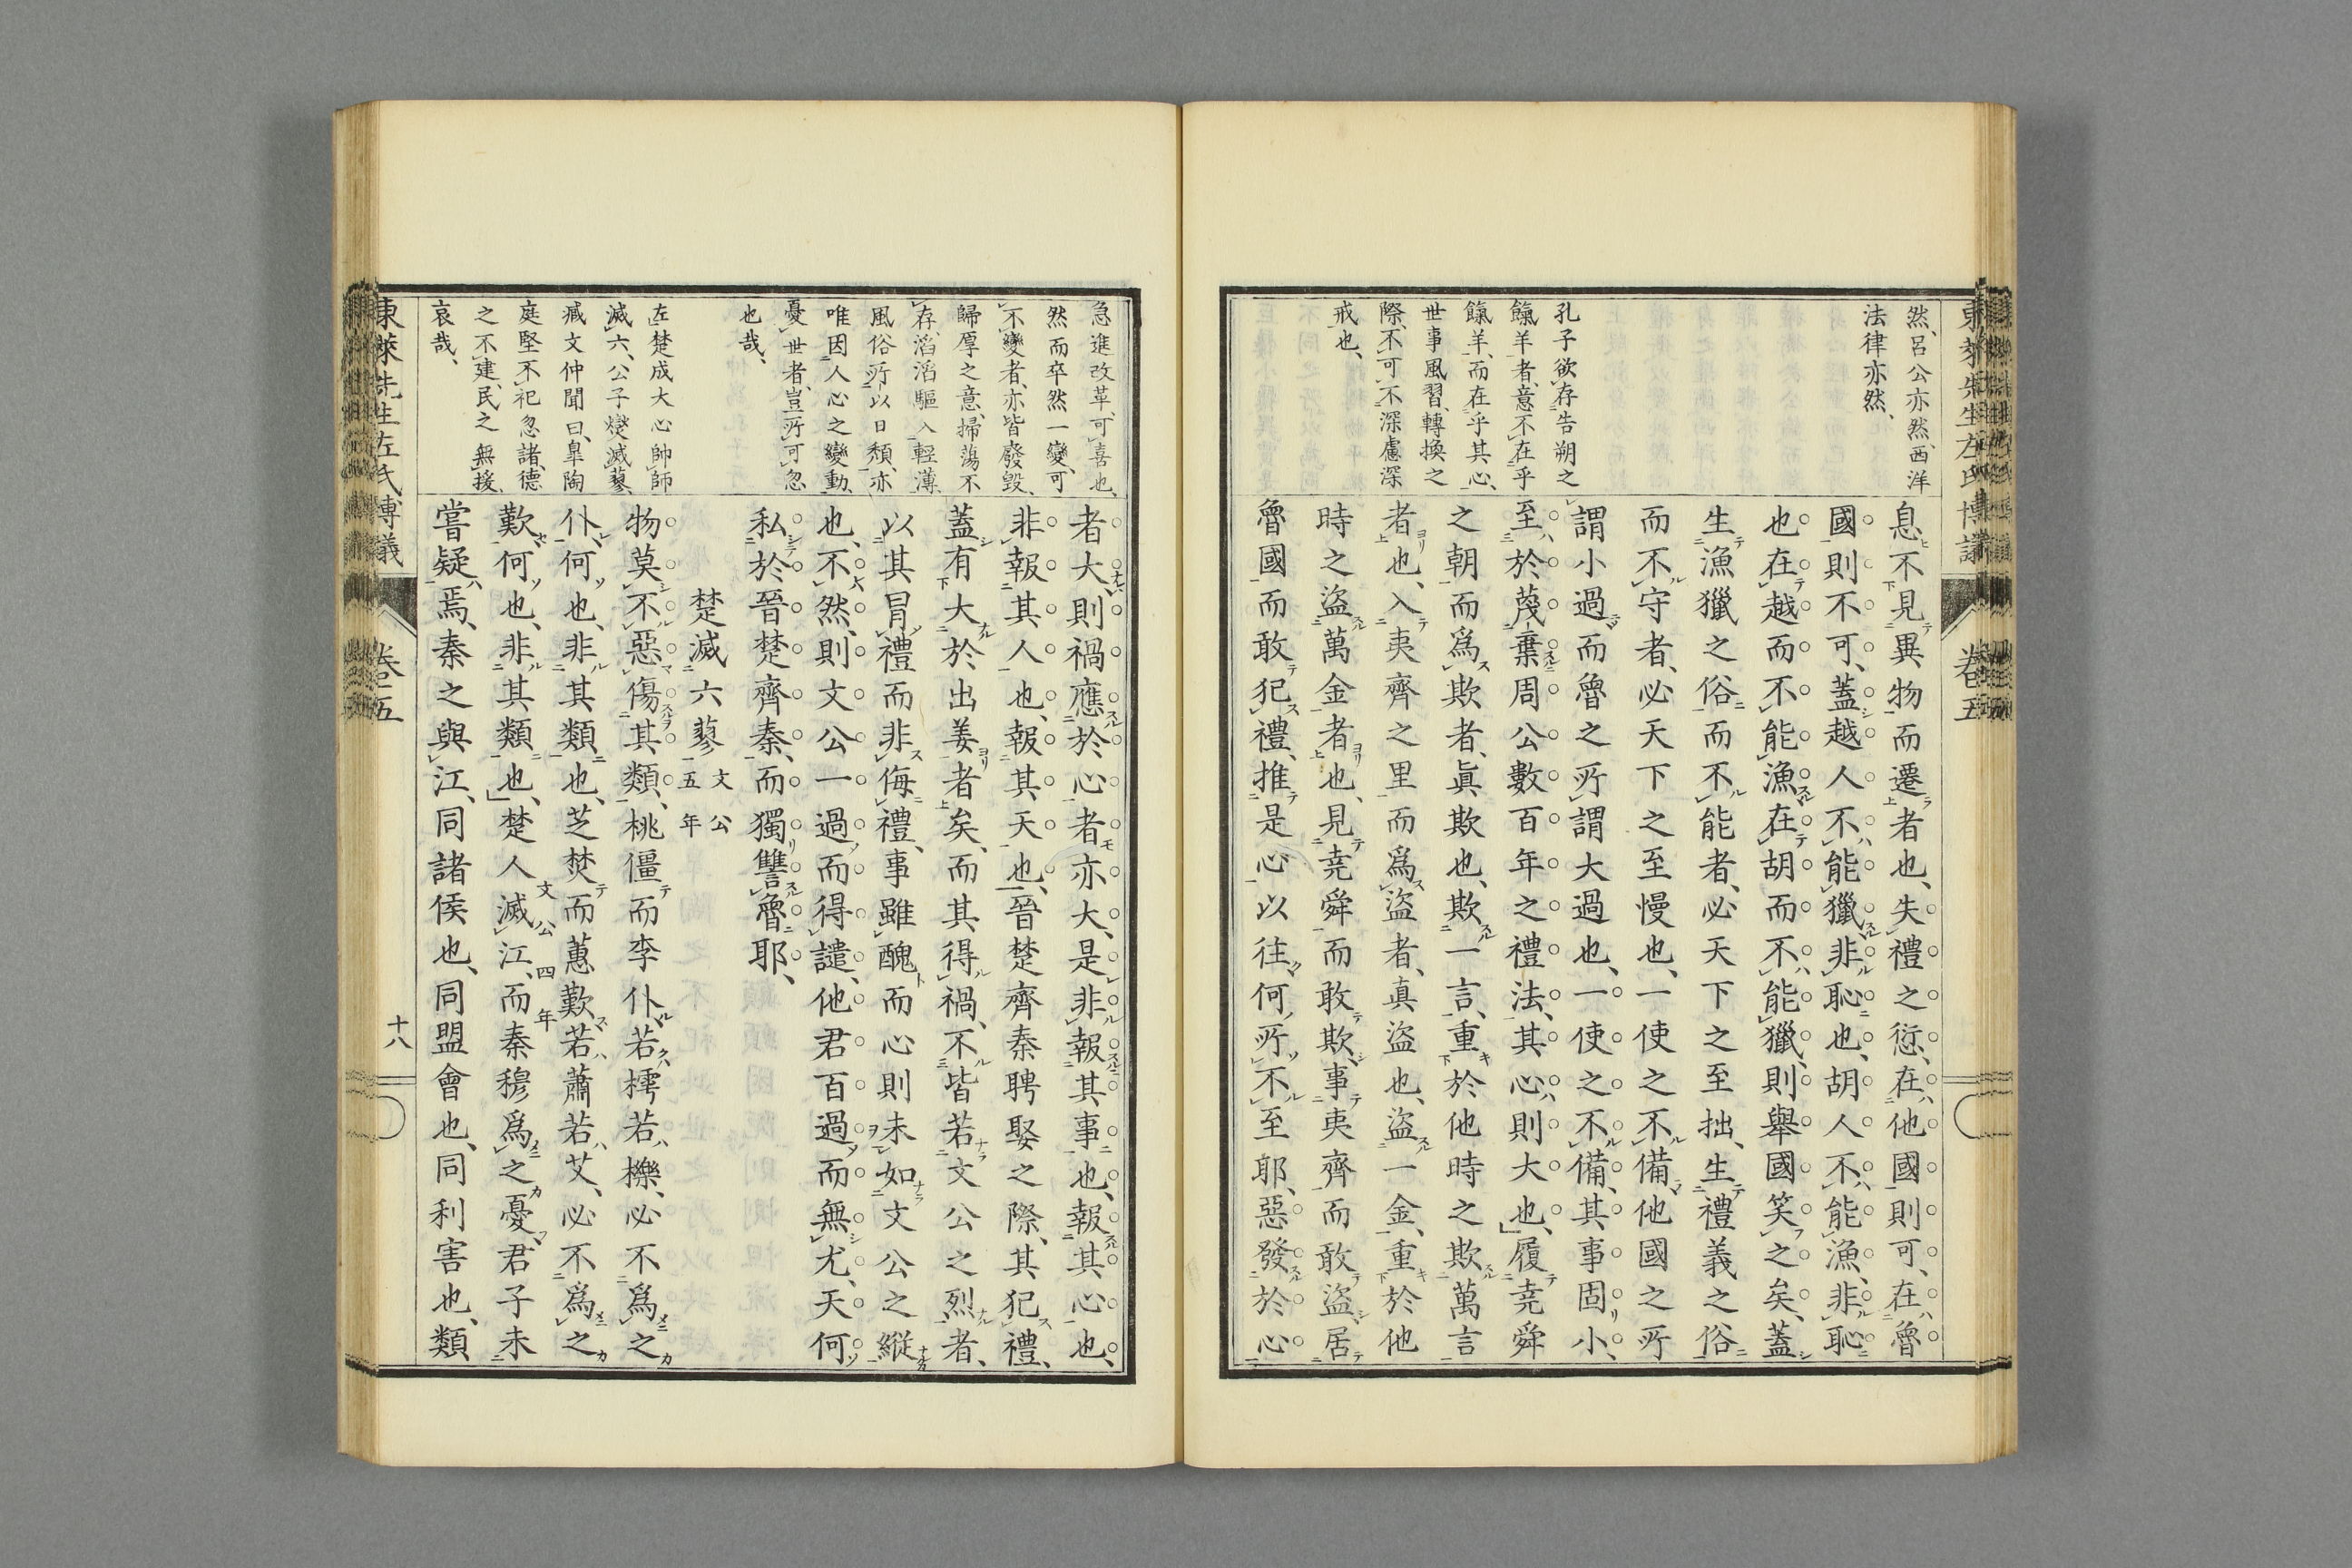 東萊先生左氏博議
卷五
然、呂公亦然、西洋
法律亦然、
孔子欲存告朔之
餼羊者、意不在乎
餼羊、而在乎其心、
世事風習、轉換之
際、不可不深慮深
戒也、
息不見異物而遷者也、失禮之愆、在他國則可、在魯
國則不可、蓋越人不能獵非恥也、胡人不能漁、非恥
也在越而不能漁在胡而不能獵、則舉國笑之矣、蓋
生漁獵之俗而不能者、必天下之至拙、生禮義之俗
而不守者、必天下之至慢也、一使之不備他國之所
謂小過而魯之所謂大過也、一使之不備、其事固小、
至於蔑棄周公數百年之禮法、其心則大也、履堯舜
之朝而爲欺者、眞欺也、欺一言、重於他時之欺萬言
者也、入夷齊之里而爲盜者、真盜也、盜一金、重於他
時之盜萬金者也、見堯舜而敢欺、事夷齊而敢盜、居
魯國而敢犯禮、推是心以往、何所不至耶、惡發於心
急進改革、可喜也、
然而卒然一變、可
不變者、亦皆廢毀、
歸厚之意、掃蕩不
存、滔滔驅入輕薄、
風俗所以日頹、亦
唯因人心之變動、
憂世者、豈所可忽
也哉、
左楚成大心帥師
滅六、公子燮滅蓼、
臧文仲聞曰、皐陶
庭堅不祀忽諸、德
之不建、民之無援、
哀哉、
者大則禍應於心者亦大、是非報其事也、報其心也、
非報其人也、報其天也、晉楚齊秦聘娶之際、其犯禮、
蓋有大於出姜者矣、而其得禍、不皆若文公之烈者、
以其冒禮而非侮禮、事雖醜而心則未如文公之縱
也、不然、則文公一過而得譴、他君百過而無尤、天何
私於晉楚齊秦、而獨讐魯耶、
楚滅六蓼 文公五年
物莫不惡傷其類、桃僵而李仆、若樗若櫟、必不爲之
仆、何也、非其類也、芝焚而蕙歎、若蕭若艾、必不爲之
歎、何也、非其類也、楚人滅江、文公四年而秦穆爲之憂、君子未
嘗疑焉、秦之與江、同諸侯也、同盟會也、同利害也、類
東萊先生左氏博議
卷五
十八